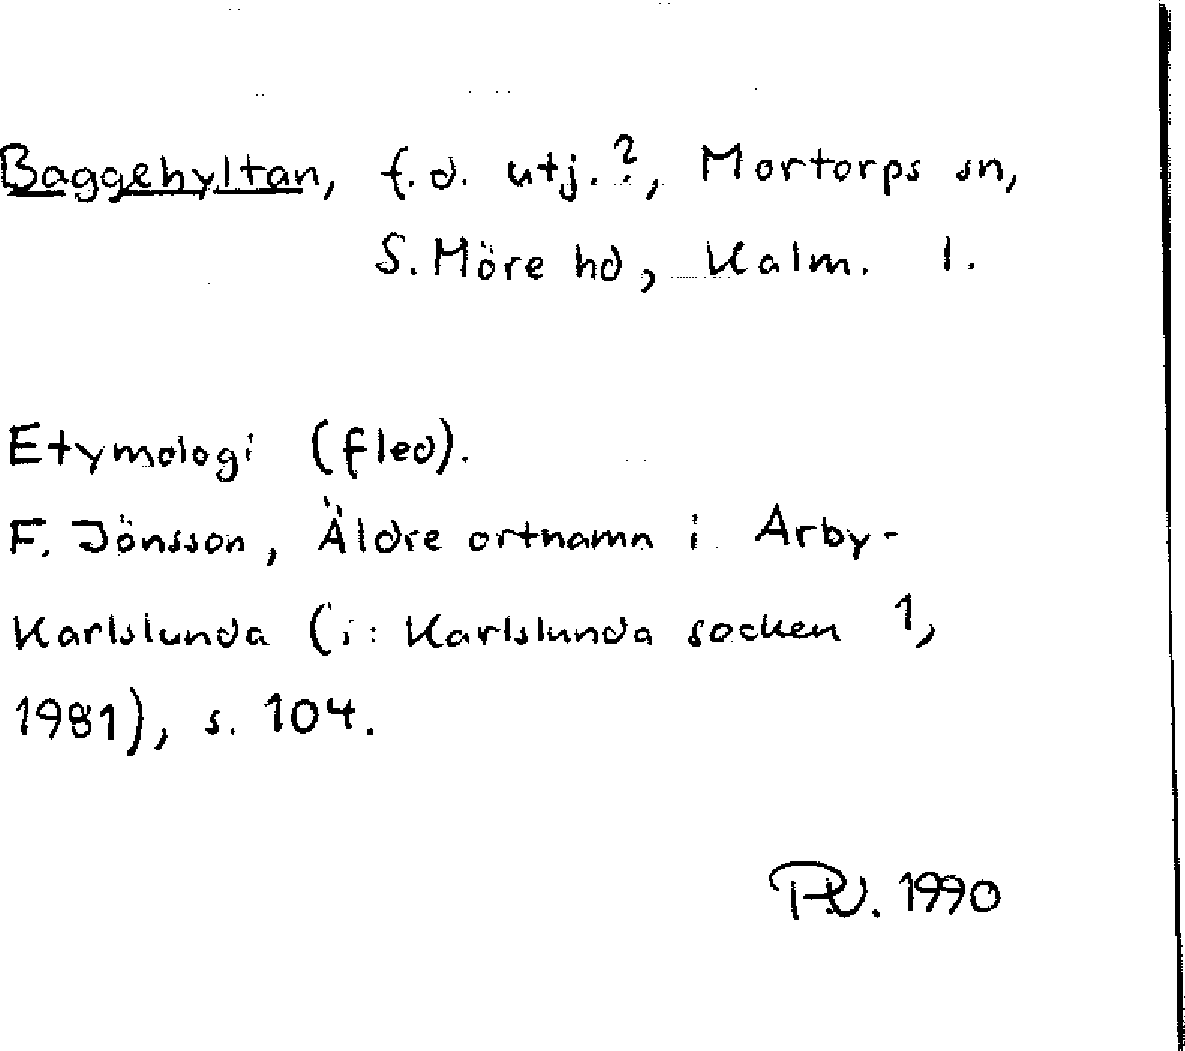 Baggehyltan, f.d. utj.?, Mortorps sn,
S. Möre hd, Kalm. l.
Etymologi (fled).
F. Jönsson, Äldre ortnamn i Arby-
Karlslunda (i: Karlslunda socken 1,
1981), s. 104.
1990